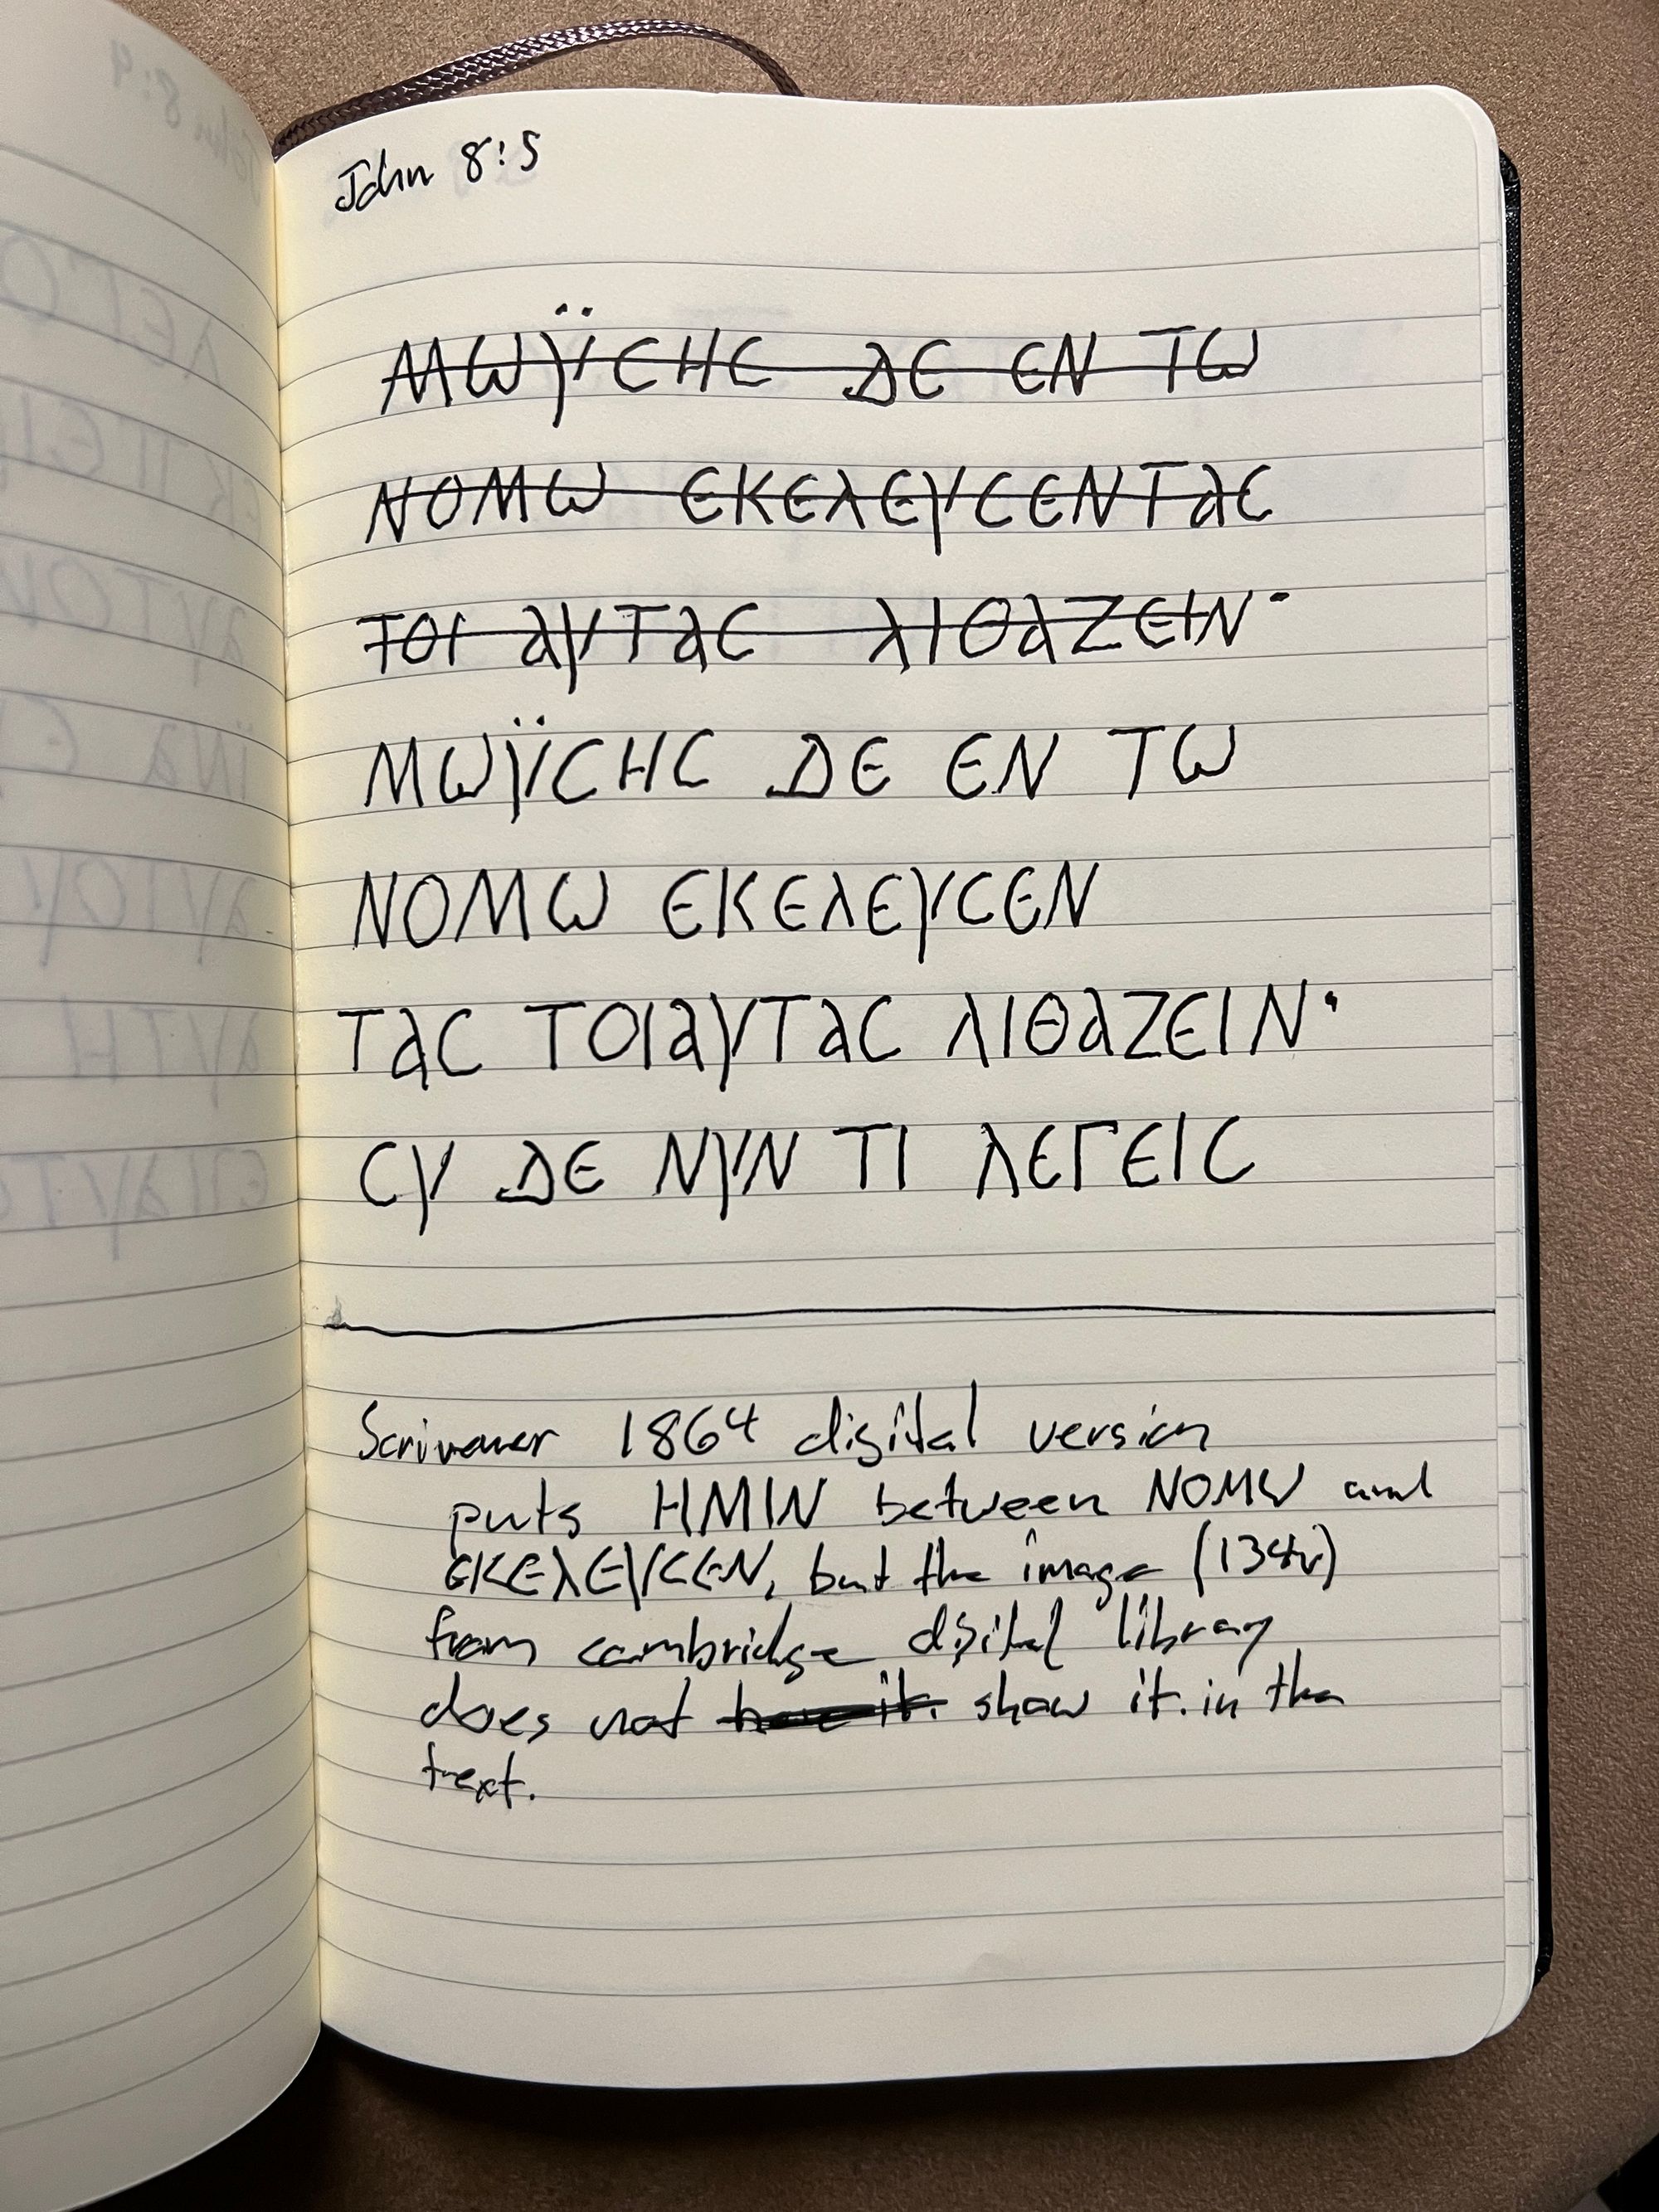 John 8:5
ΜωϔCHC ΔΕ ΕΝ Τω
ΝΟΜω ΕΚΕλΕΥCΕΝΤαC
ΤΟΙ αΥΤαC λΙΘαΖΕΙΝ·
ΜωϔCHC ΔΕ ΕΝ Τω
ΝΟΜω ΕΚΕλΕΥCΕΝ
ΤαC ΤΟΙαΥΤαC λΙΘαΖΕΙΝ·
CΥ ΔΕ ΝΥΝ ΤΙ λΕΓΕΙC
Scrivener 1864 digital version
puts ΗΜΙΝ between ΝΟΜω and
ΕΚΕλΕΥCΕΝ, but the image (134v)
from cambridge digital library
does not have it. show it. in the
text.